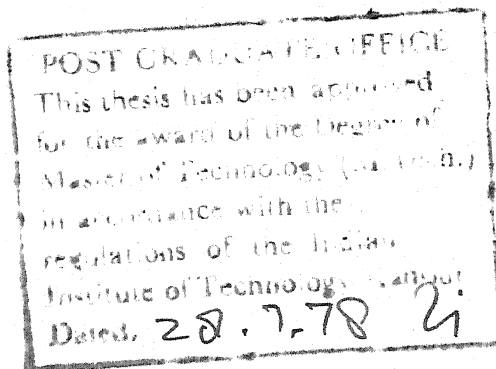 POST GRADUATE OFFICE
This thesis has been approved
for the award of the Degree of
Master of Technology (M. Tech.)
in accordance with the
regulations of the Indian
Institute of Technology Kanpur
Dated. 28.7.78